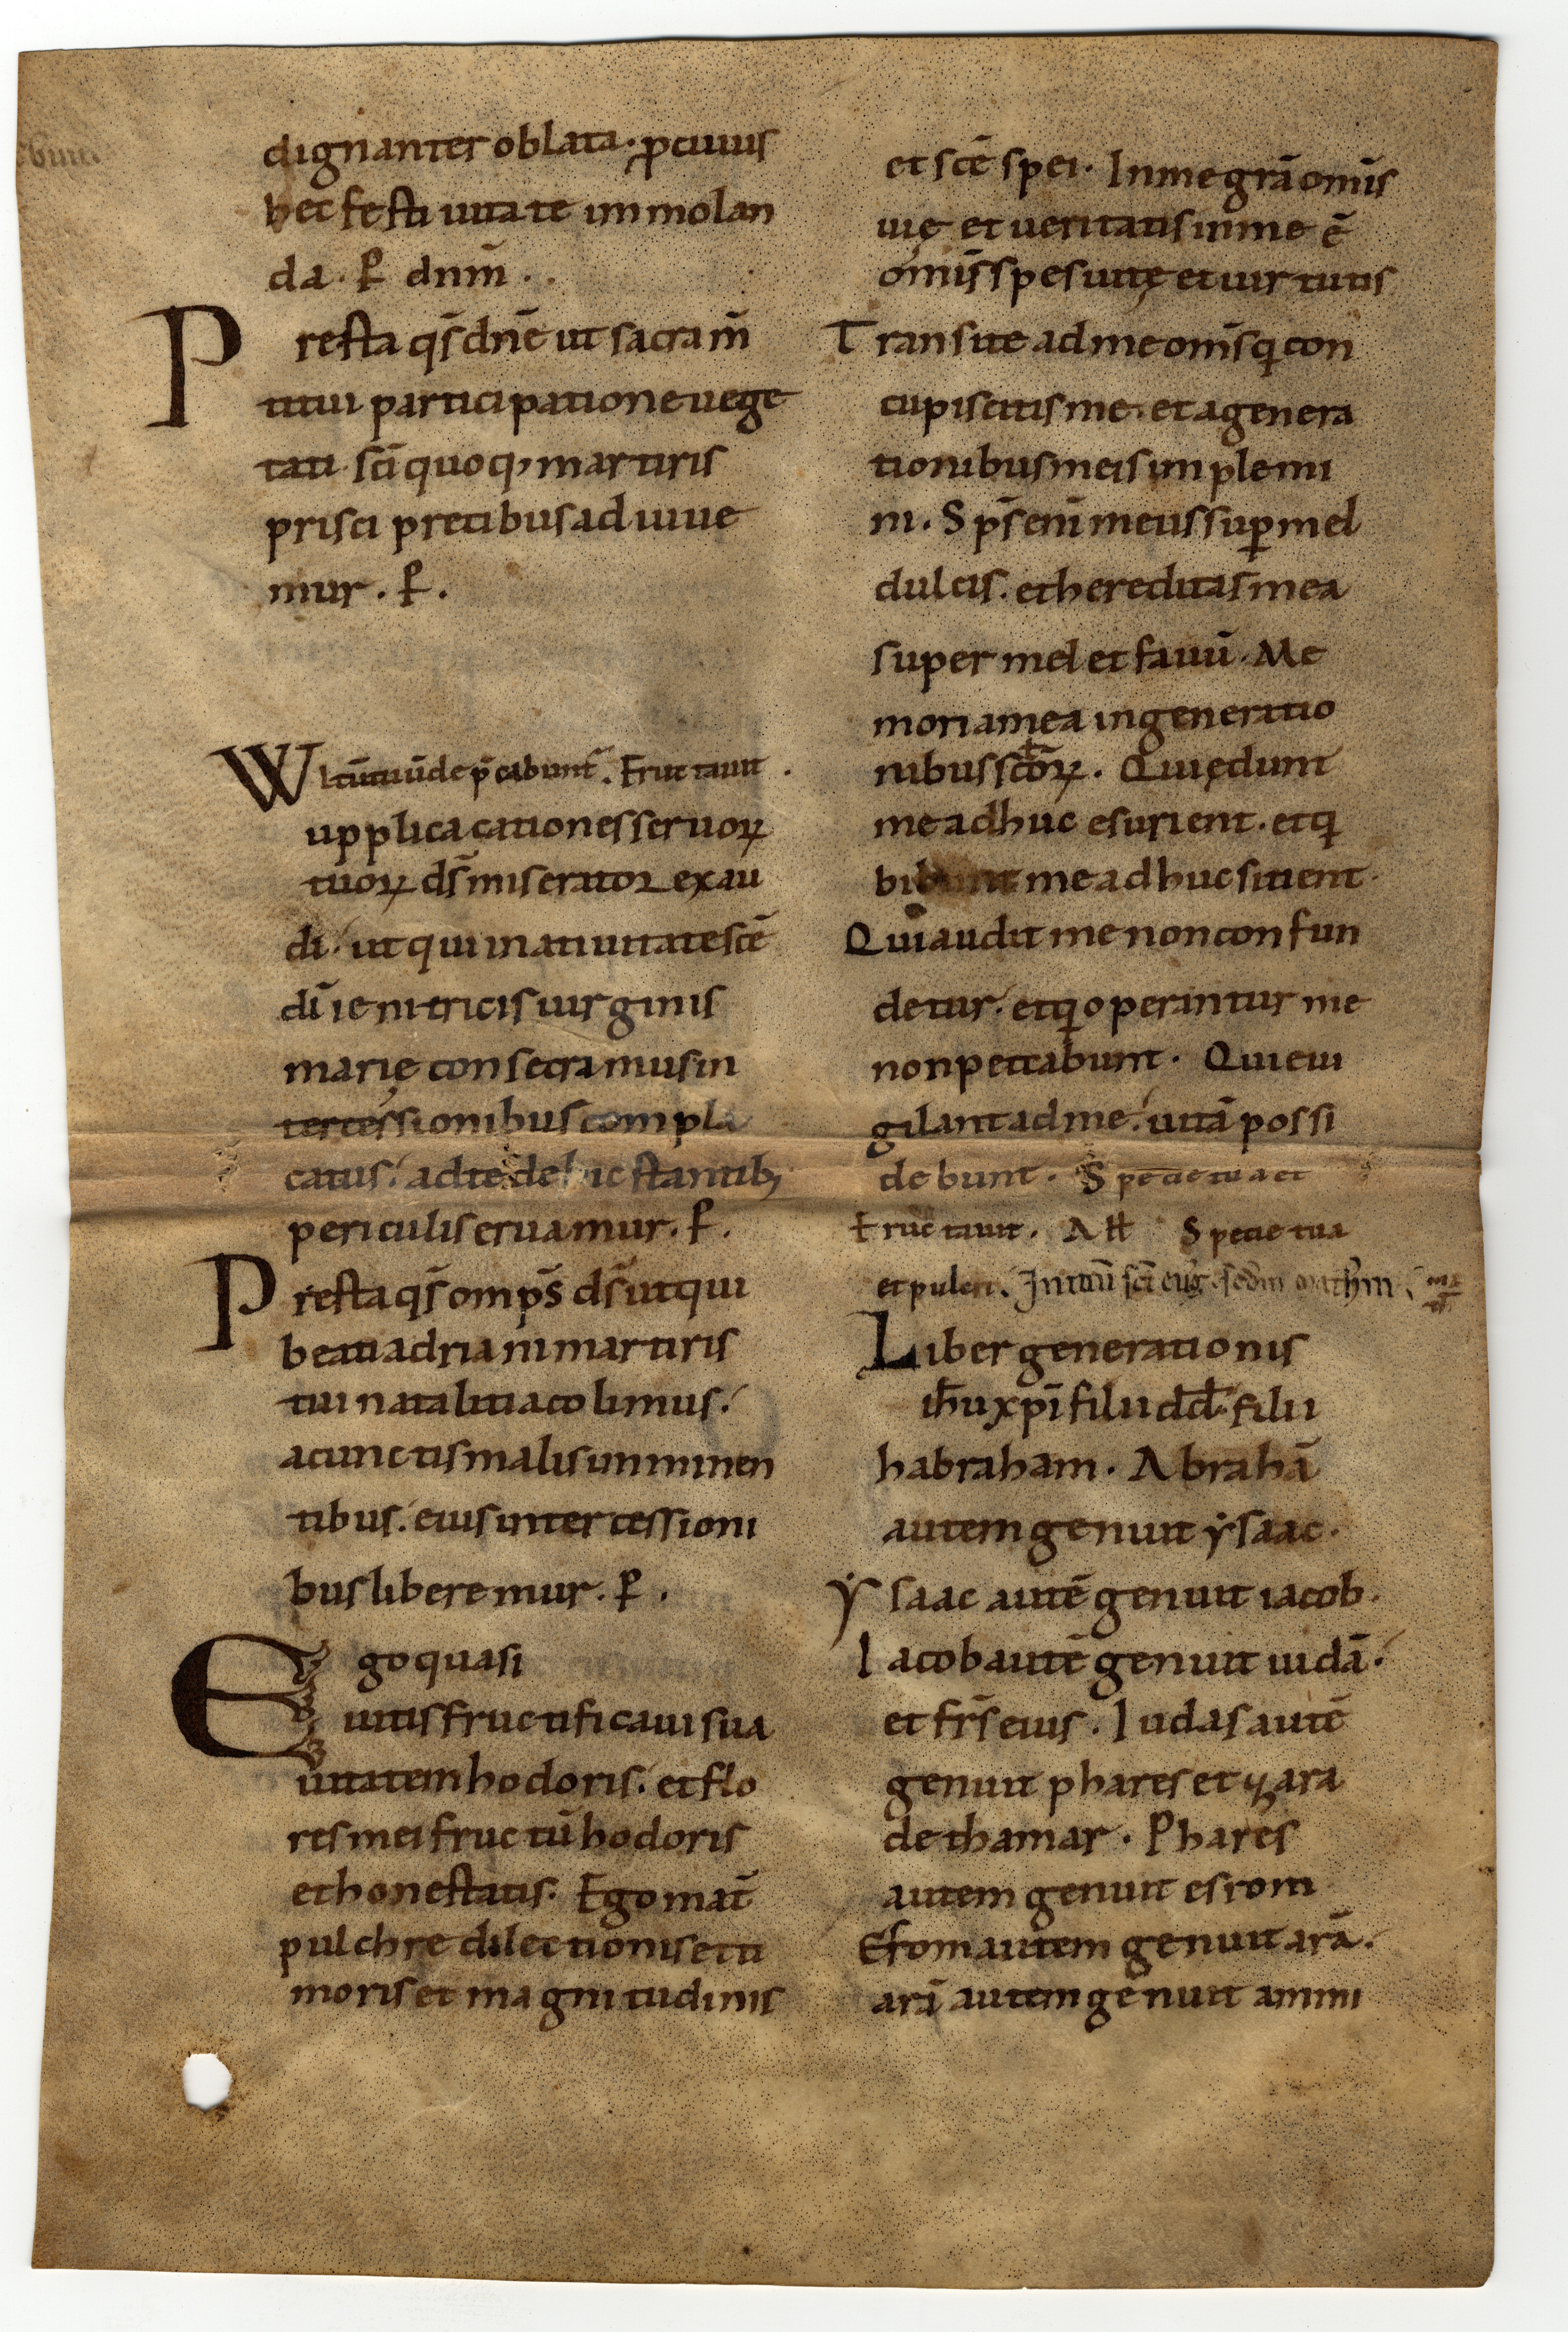 dignanter oblata · ꝓ cuius
hec festiuitate immolan
da · P̱ dnm̄ ·
Presta qs̄ dnē ut sacram̄
ti tui participatione uege
tati sc̄i quoq; martiris
prisci precibus adiuue
mur · P̱ ·
Wltū tuū dep̄cabunt̄ . Eructauit .
upplicacationes seruoꝝ
tuoꝝ ds̄ miserator exau
di · ut qui in natiuitate scē
dī ienitricis uirginis
marię consecramus in
tercessionibus compla
catus · a dte de hic stantib;
periculis eruamur · P̱ .
Presta qs̄ omps̄ ds̄ ut qui
beati adriani martiris
tui natalitia colimus ·
a cunctis malis imminen
tibus · eius intercessioni
bus liberemur · P̱ .
Ego quasi
uitis fructificaui sua
uitatem hodoris · et flo
res mei fructū hodoris
et honestatis · Ego mat̄
pulchre dilectionis et ti
moris et magnitudinis
et scē spei · In me grā omīs
uię et ueritatis in me ē
omīs spes uitę et uirtutis
Transite ad me omīs q̄ con
cupiscitis me · et a genera
tionibus meis implemi
ni . Sps̄ enī meus sup̱ mel
dulcis · et hereditas mea
super mel et fauū · Me
moria mea in generatio
nibus sctōꝝ . Qui ędunt
me adhuc esurient · et q̄
bibunt me adhuc sitient ·
Qui audit me non confun
detur · et q̄ operantur me
non peccabunt · Qui eui
gilant ad me · uitā possi
debunt · Specie tua et
Eructauit . All Specie tua
et pulcri . Initiū sc̄i euḡ . scdm mathm .
Liber generationis
ih̄u xpī filii dd̄ · filii
habraham · Abrahā
autem genuit ẏsaac ·
Ẏsaac autē genuit iacob ·
Iacob autē genuit iudā ·
et frs̄ eius . Iudas autē
genuit phares et zara
de thamar · Phares
autem genuit esrom
Esrom autem genuit arā ·
arā autem genuit amini